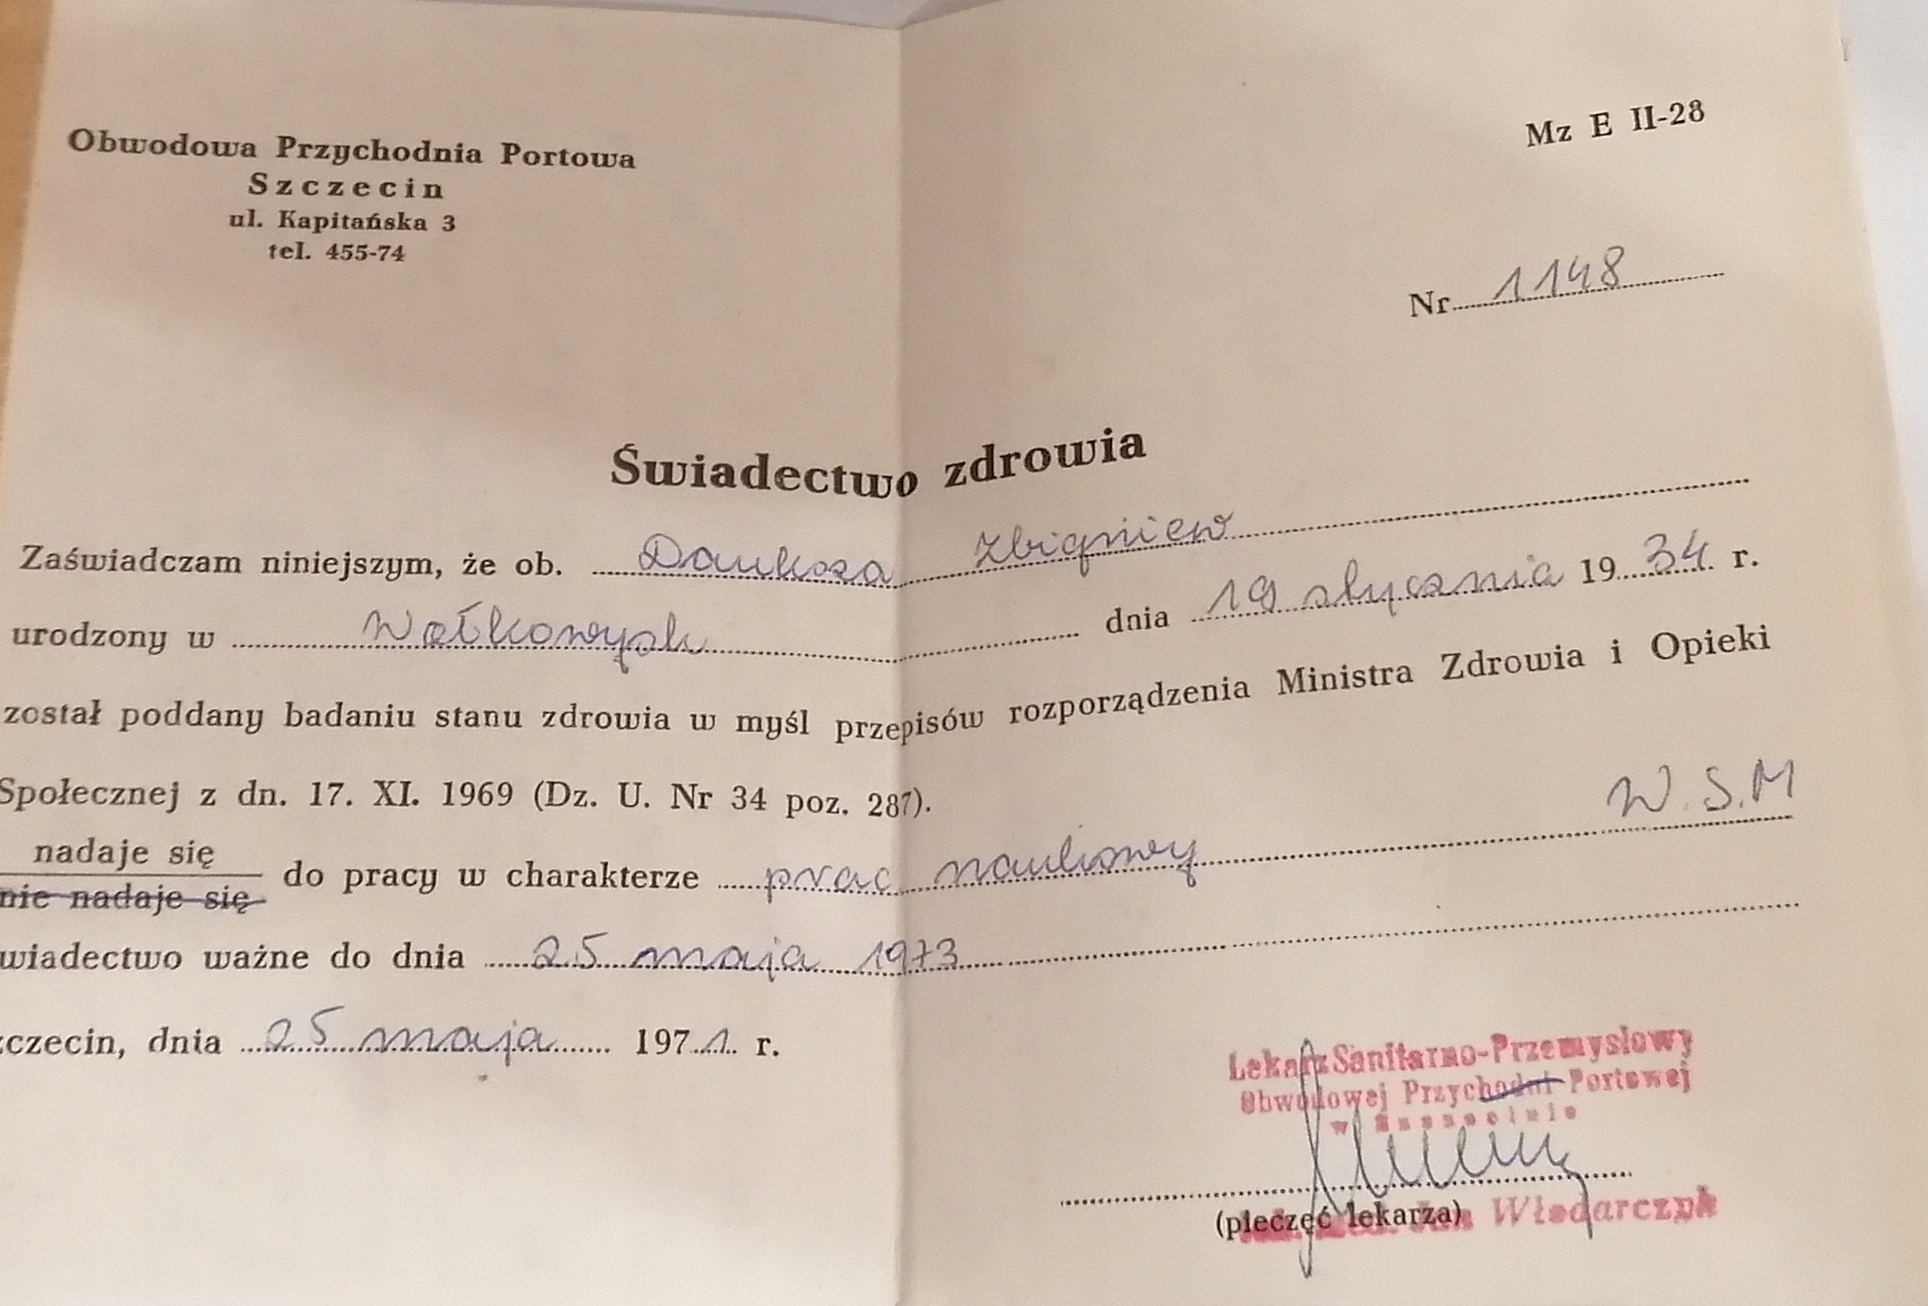 Obwodowa Przychodnia Portowa
Szczecin
ul. Kapitańska 3
tel. 455-74
Mz E II-28
Nr 1148
Świadectwo zdrowia
Zaświadczam niniejszym, że ob. Dauksza Zbigniew
urodzony w Wołkowysk dnia 19 stycznia 1934 r.
został poddany badaniu stanu zdrowia w myśl przepisów rozporządzenia Ministra Zdrowia i Opieki
Społecznej z dn. 17. XI. 1969 (Dz. U. Nr 34 poz. 287).
nadaje się
nie nadaje się
do pracy w charakterze prac naukowy W.S.M
wiadectwo ważne do dnia 25 maja 1973
czecin, dnia 25 maja 1971 r.
Lekarz Sanitarno-Przemysłowy
Obwodowej Przychodni Portowej
w Szczecinie
(pieczęć lekarza)
Jan Włodarczyk